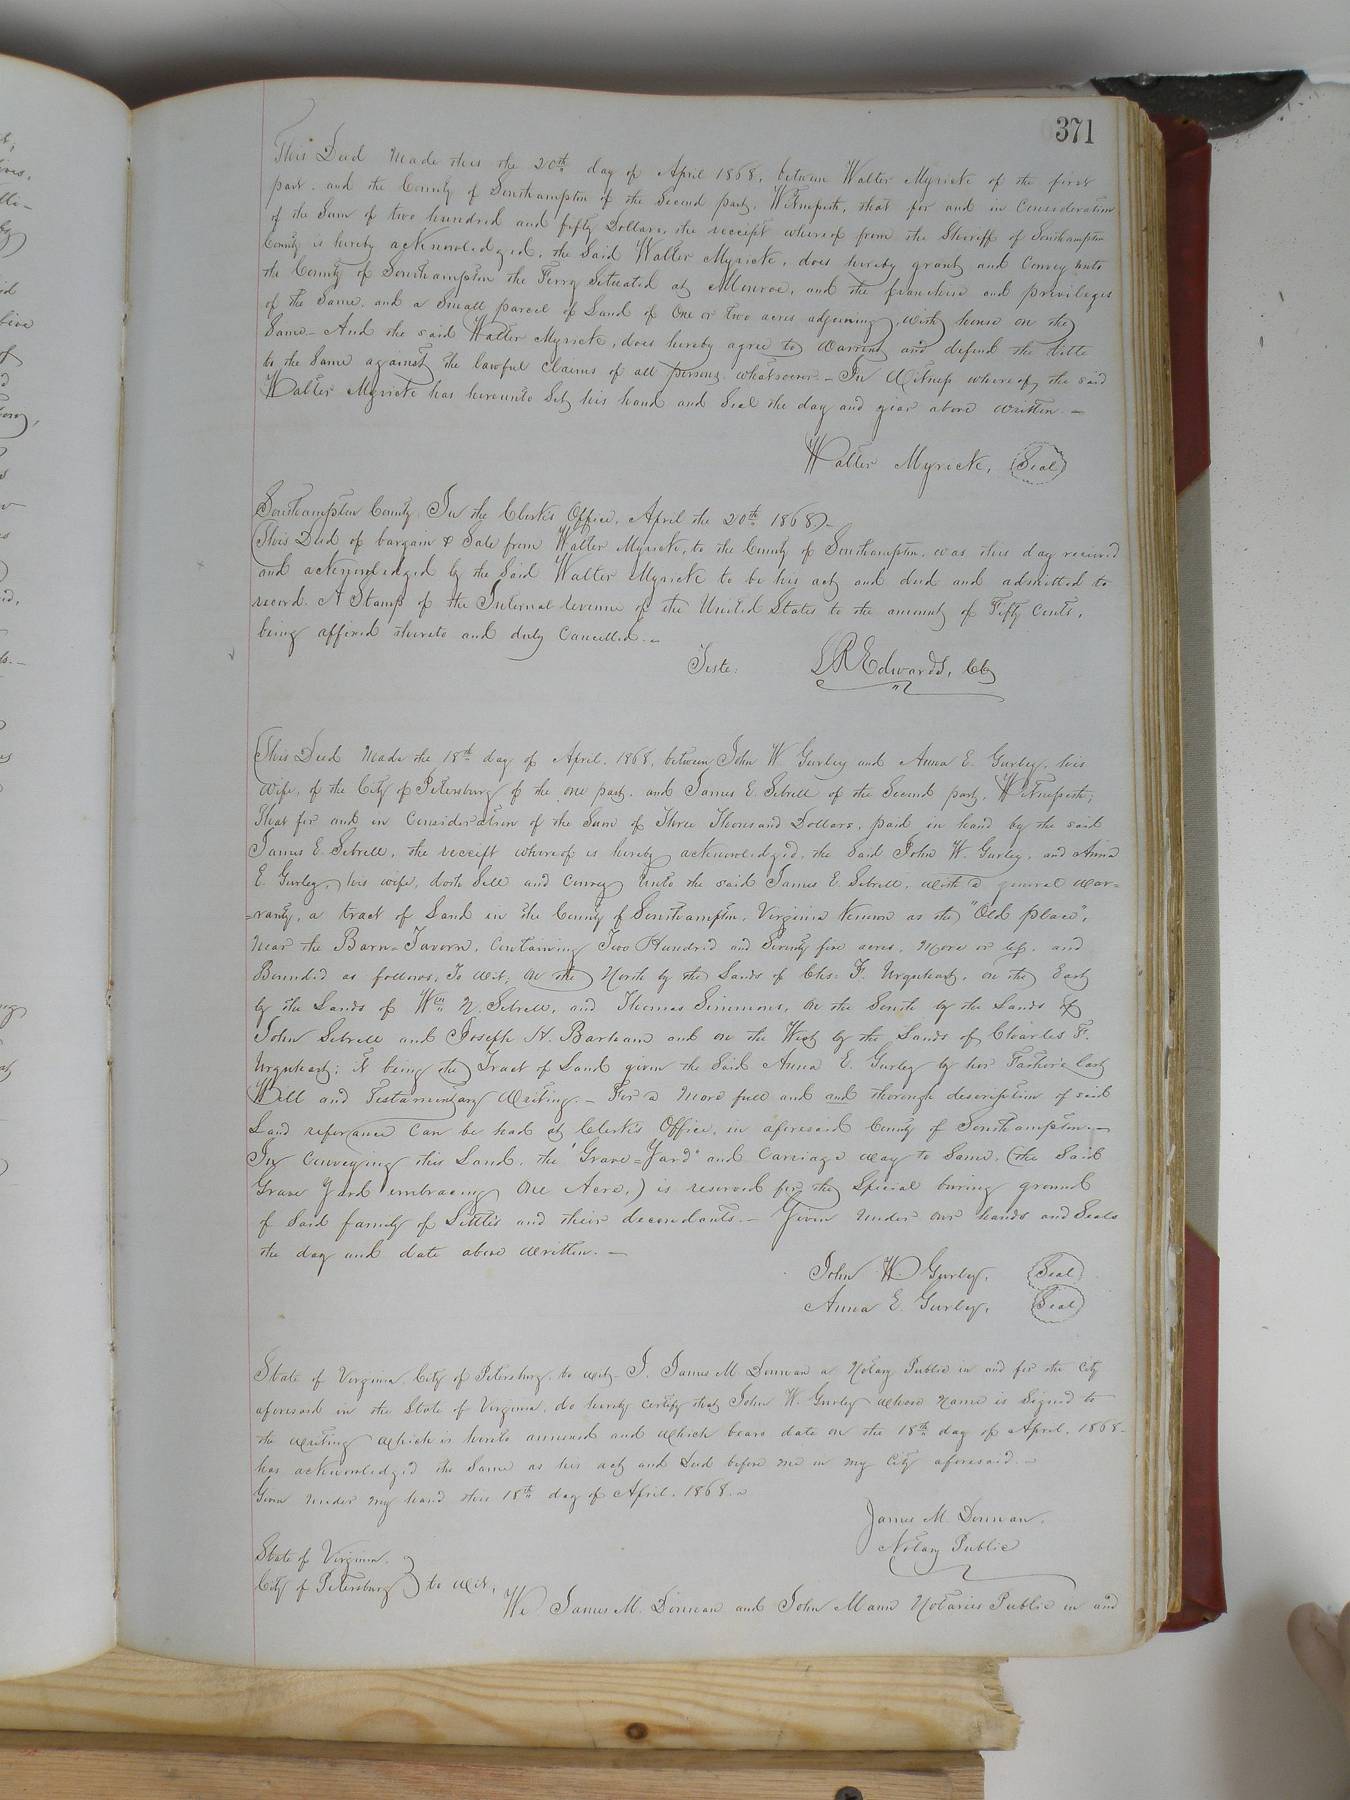 371
This Deed Made this the 20th day of April 1868, between Walter Myrick of the first
part, and the County of Southampton of the Second part, Witnesseth, that for and in Consideration
of the Sum of two hundred and fifty Dollars, the receipt whereof from the Sheriff of Southampton
County is hereby acknowledged, the Said Walter Myrick, does hereby grant and Convey unto
the County of Southampton the Ferry Situated at Monroe, and the franchise and privileges
of the Same, and a Small parcel of Land of One or two acres adjoining, with house on the
Same - And the said Walter Myrick, does hereby agree to warrent and defend the title
to the Same against the lawful Claims of all persons whatsoever. - In Witness whereof, the said
Walter Myrick has hereunto Set his hand and Seal the day and year above written. -
Walter Myrick, (Seal)
Southampton County, In the Clerk's Office, April the 20th 1868. -
This Deed of bargain & Sale from Walter Myrick, to the County of Southampton, was this day received
and acknowledged by the Said Walter Myrick to be his act and deed and admitted to
record. A Stamp of the Internal revenue of the United States to the amount of Fifty Cents,
being affixed thereto and duly Cancelled. -
Teste: L R Edwards, Clk
This Deed Made the 18th day of April, 1868, between John W Gurley and Anna E. Gurley, his
Wife, of the City of Petersburg of the one part, and James E. Sebrell of the Second part, Witnesseth;
That for and in Consideration of the Sum of Three Thousand Dollars, paid in hand by the said
James E. Sebrell, the receipt whereof is hereby acknowledged, the Said John W. Gurley, and Anna
E. Gurley, his wife, doth Sell and Convey Unto the said James E. Sebrell, with a general war=
=ranty, a tract of Land in the County of Southampton, Virginia Known as the "Old place",
Near the Barn-Tavern, Containing Two Hundred and Seventy five acres, More or less, and
Bounded as follows, To wit; On the North by the Lands of Chs: F. Urquhart, on the East
by the Lands of Wm N. Sebrell, and Thomas Simmons, On the South by the Lands of
John Sebrell and Joseph H. Barham and on the West by the Lands of Charles F.
Urquhart; it being the Tract of Land given the Said Anna E. Gurley by her Father's last
Will and Testamentary Writing. - For a More full and and thorough description of said
Land referance Can be had at Clerk's Office, in aforesaid County of Southampton. -
In Conveying this Land, the "Grave=Yard" and Carriage way to Same, (the Said
Grave Yard embracing One Acre,) is reserved for the Special buring ground
of Said family of and their decendants. - Given Under our hands and Seals
the day and date above written. -
John W. Gurley, (Seal)
Anna E. Gurley, (Seal)
State of Virginia, City of Petersburg, to wit - I, James M. Donnan a Notary Public in and for the City
aforesaid in the State of Virginia, do hereby certify that John W. Gurley whose Name is Signed to
the writing which is hereto annexed and which bears date on the 18th day of April, 1868 -
has acknowledged the Same as his act and deed before me in my City aforesaid. -
Given under my hand this 18th day of April, 1868. -
James M. Donnan,
Notary Public
State of Virginia,
City of Petersburg } to wit,
We James M. Donnan and John Mann Notaries Public in and